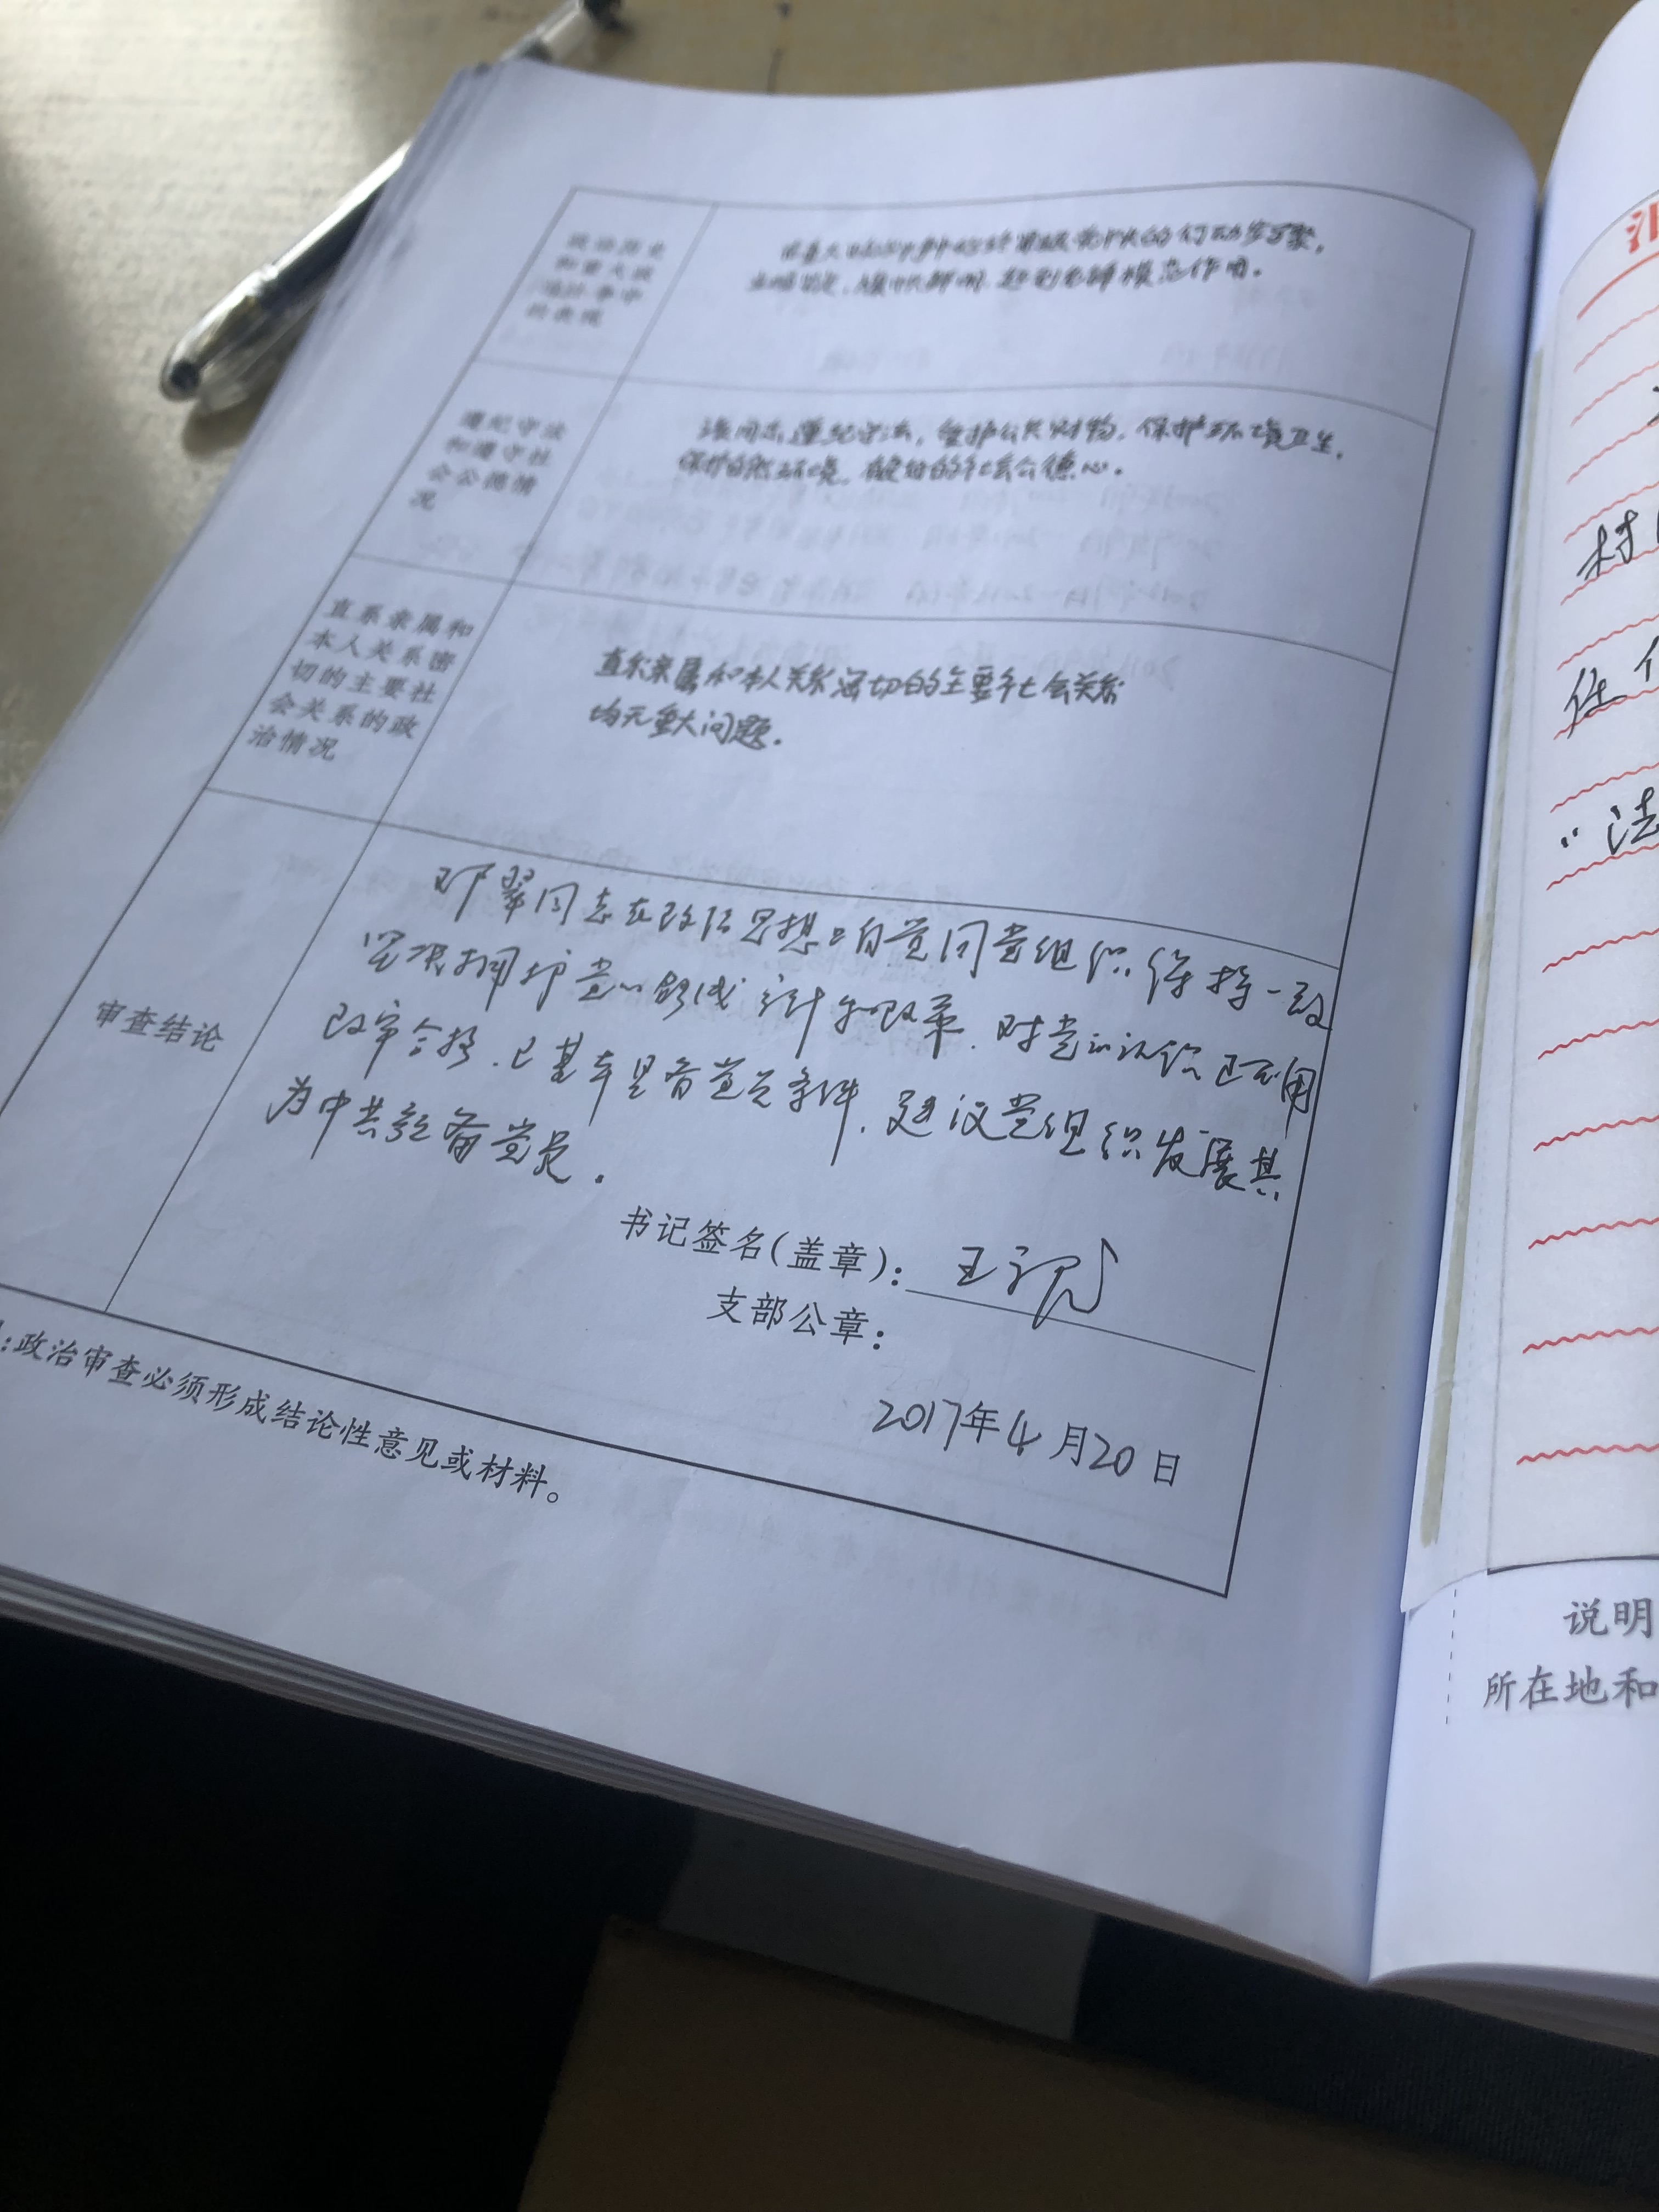 政治历史
和重大政
治斗争中
的表现
作用。
遵纪守法
和遵守社
会公德情
况
该同志遵纪守法，维护公共财物，保护环境卫生，
保护自然环境，有良好的社会公德心。
直系亲属和
本人关系密
切的主要社
会关系的政
治情况
直系亲属和本人关系密切的主要社会关系
均无重大问题。
审查结论
邓翠同志在政治思想上自觉同党组织保持一致
坚决拥护党的路线 改革，对党的认识
政审合格，已基本具备党员条件，建议党组织发展其
为中共预备党员。
书记签名(盖章)：王
支部公章：
2017年4月20日
：政治审查必须形成结论性意见或材料。
村
任
“法
说明
所在地和